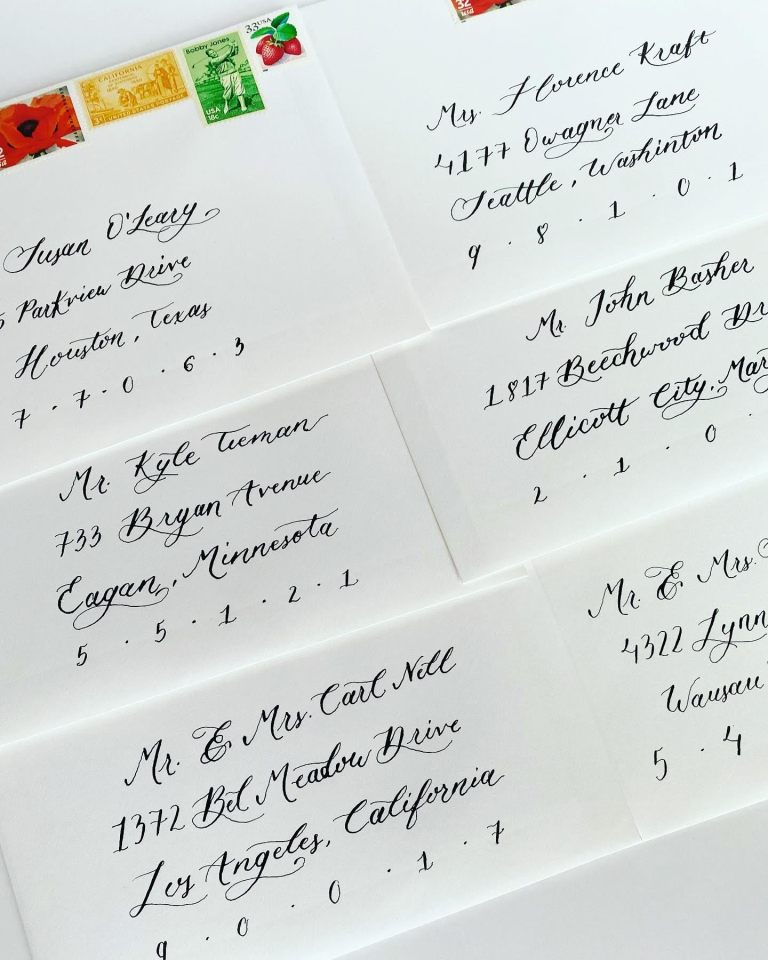 33USA
CALIFORNIA
3¢ UNITED STATES POSTAGE
Bobby Jones
USA
18c
32
Susan O'Leary
5 Parkview Drive
Houston, Texas
7 · 7 · 0 · 6 · 3
Mrs. Florence Kraft
4177 Owagner Lane
Seattle, Washinton
9 · 8 · 1 · 0 · 1
Mr. Kyle Tieman
733 Bryan Avenue
Eagan, Minnesota
5 · 5 · 1 · 2 · 1
Mr. John Basher
1817 Beechwood Dr
Ellicott City, Mar
2 · 1 · 0 ·
Mr. & Mrs. Carl Nell
1372 Bel Meadow Drive
Los Angeles, California
9 · 0 · 0 · 1 · 7
Mr. & Mrs.
4322 Lynn
Wausau
5 · 4